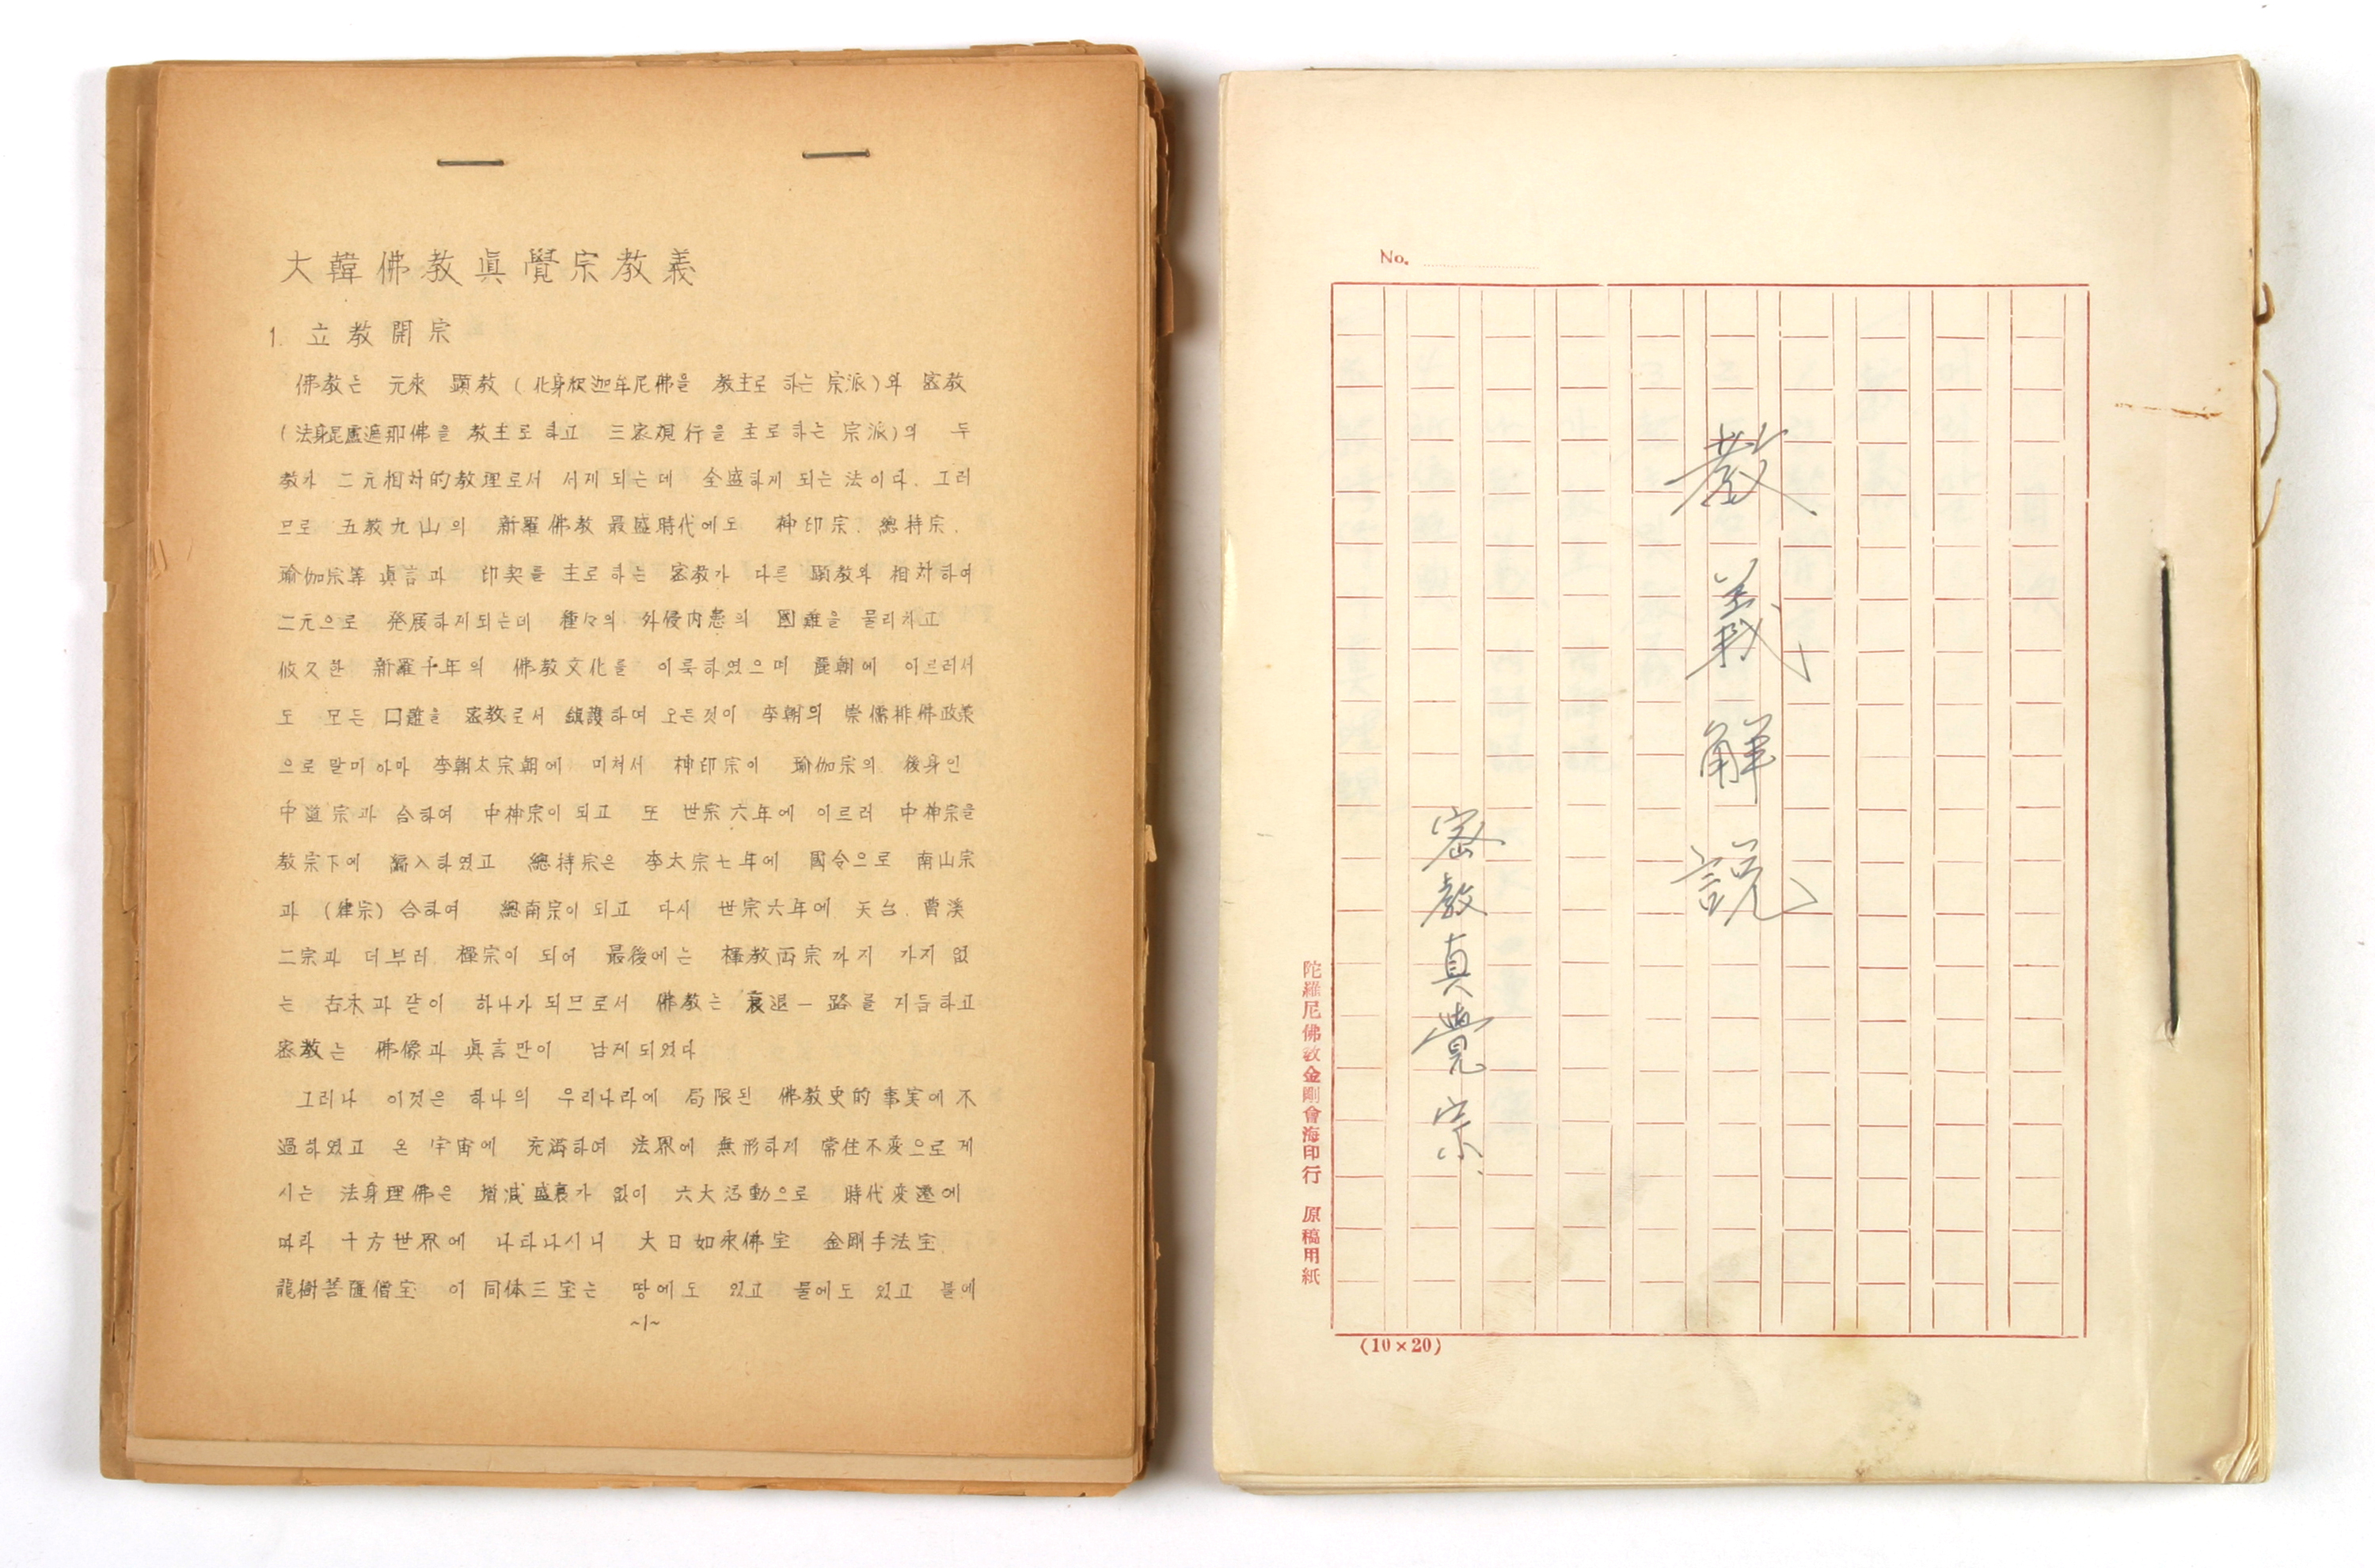 大韓佛教眞覺宗教義
1. 立教開宗
佛教는 元來 顯教 (化身釈迦牟尼佛을 教主로 하는 宗派)와 密教
(法身毘盧遮那佛을 教主로 하고 三密観行을 主로 하는 宗派)의 두
教가 二元相対的教理로서 서게 되는데 全盛하게 되는 法이다. 그러
므로 五教九山의 新羅佛教 最盛時代에도 神印宗. 總持宗.
瑜伽宗等 眞言과 印契를 主로 하는 密教가 다른 顕教와 相対하여
二元으로 発展하게되는데 種々의 外侵内患의 國難을 물리치고
悠久한 新羅千年의 佛教文化를 이룩하였으며 麗朝에 이르러서
도 모든 口難을 密教로서 鎮護하여 오든것이 李朝의 崇儒排佛政策
으로 말미아마 李朝太宗朝에 미처서 神印宗이 瑜伽宗의 後身인
中道宗과 合하여 中神宗이 되고 또 世宗六年에 이르러 中神宗을
教宗下에 編入하였고 總持宗은 李太宗七年에 國令으로 南山宗
과 (律宗) 合하여 總南宗이 되고 다시 世宗六年에 天台. 曹溪
二宗과 더부러 禅宗이 되어 最後에는 禅教両宗까지 가지 없
는 古木과 같이 하나가 되므로서 佛教는 衰退一路를 거듭하고
密教는 佛像과 眞言만이 남게 되었다
그러나 이것은 하나의 우리나라에 局限된 佛教史的 事実에 不
過하였고 온 宇宙에 充満하여 法界에 無形하게 常住不変으로 계
시는 法身理佛은 增減盛衰가 없이 六大活動으로 時代変遷에
따라 十方世界에 나타나시니 大日如來佛宝 金剛手法宝
龍樹菩薩僧宝 이 同体三宝는 땅에도 있고 물에도 있고 불에
~1~
No.
教義解說
密教真覺宗
陀羅尼佛教金剛會海印行 原稿用紙
(10×20)